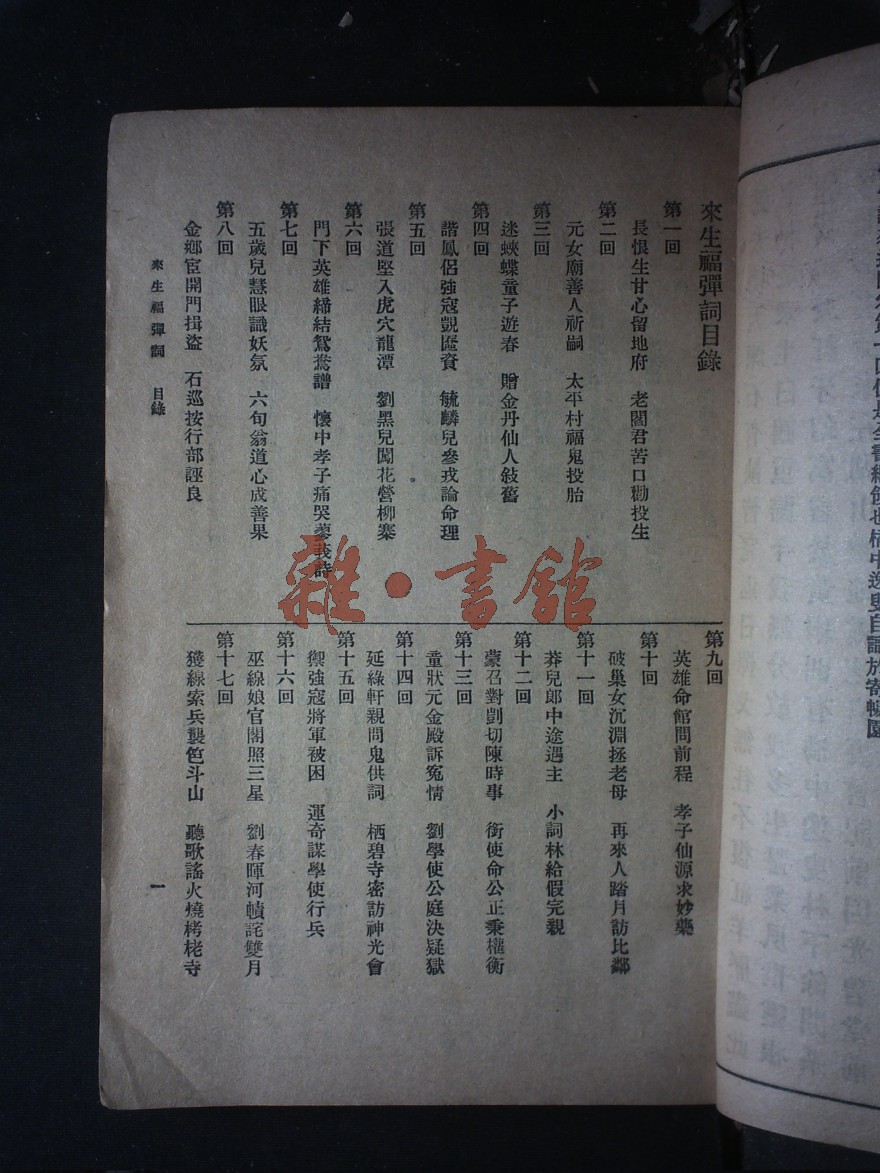 來生福彈詞目錄
第一回
長恨生甘心留地府　老閻君苦口勸投生
第二回
元女廟善人祈嗣　太平村福鬼投胎
第三回
迷蛺蝶童子遊春　贈金丹仙人敍舊
第四回
諧鳳侶強寇覬匳資　毓麟兒參戎論命理
第五回
張道堅入虎穴龍潭　劉黑兒闖花營柳寨
第六回
門下英雄締結鴛鴦譜　懷中孝子痛哭蓼莪詩
第七回
五歲兒慧眼識妖氛　六旬翁道心成善果
第八回
金鄉宦開門揖盜　石巡按行部誣良
第九回
英雄命館問前程　孝子仙源求妙藥
第十回
破巢女沉淵拯老母　再來人踏月訪比鄰
第十一回
莽兒郎中途遇主　小詞林給假完親
第十二回
蒙召對剴切陳時事　銜使命公正秉權衡
第十三回
童狀元金殿訴冤情　劉學使公庭決疑獄
第十四回
延綠軒親問鬼供詞　栖碧寺密訪神光會
第十五回
禦強寇將軍被困　運奇謀學使行兵
第十六回
巫線娘官閣照三星　劉春暉河幀詫雙月
第十七回
獲線索兵襲笆斗山　聽歌謠火燒栲栳寺
來生福彈詞　目錄
一
雜·書館